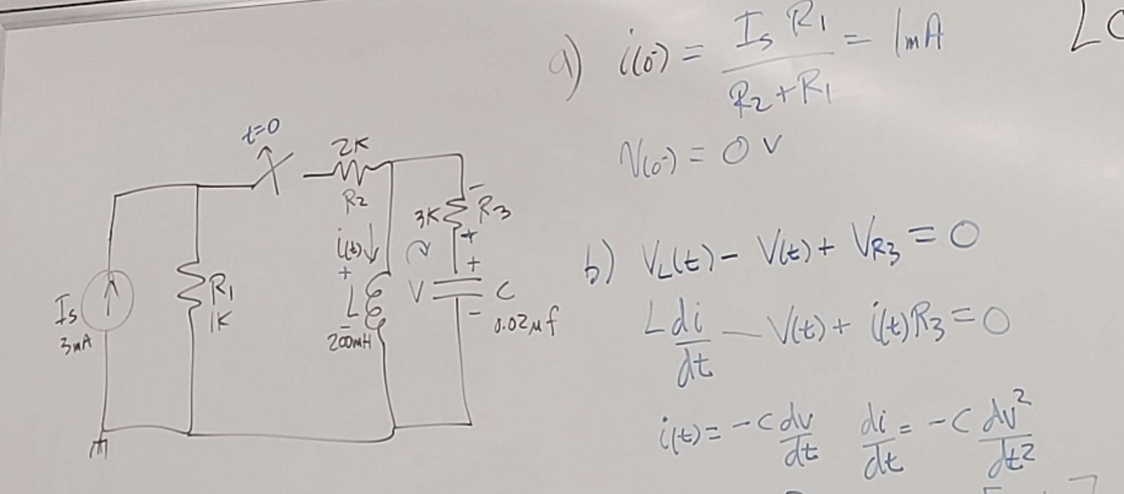 t=0
2K
R2
3K
R3
i(t)
+
+
+
-
L
-
200mH
V
C
-
0.02μf
Is
3mA
R1
1K
a) i(0-) = Is R1 / R2+R1 = 1mA
V(0-) = 0 V
b) VL(t) - V(t) + VR3 = 0
L di/dt - V(t) + i(t)R3 = 0
i(t) = -C dv/dt di/dt = -C dv²/dt²